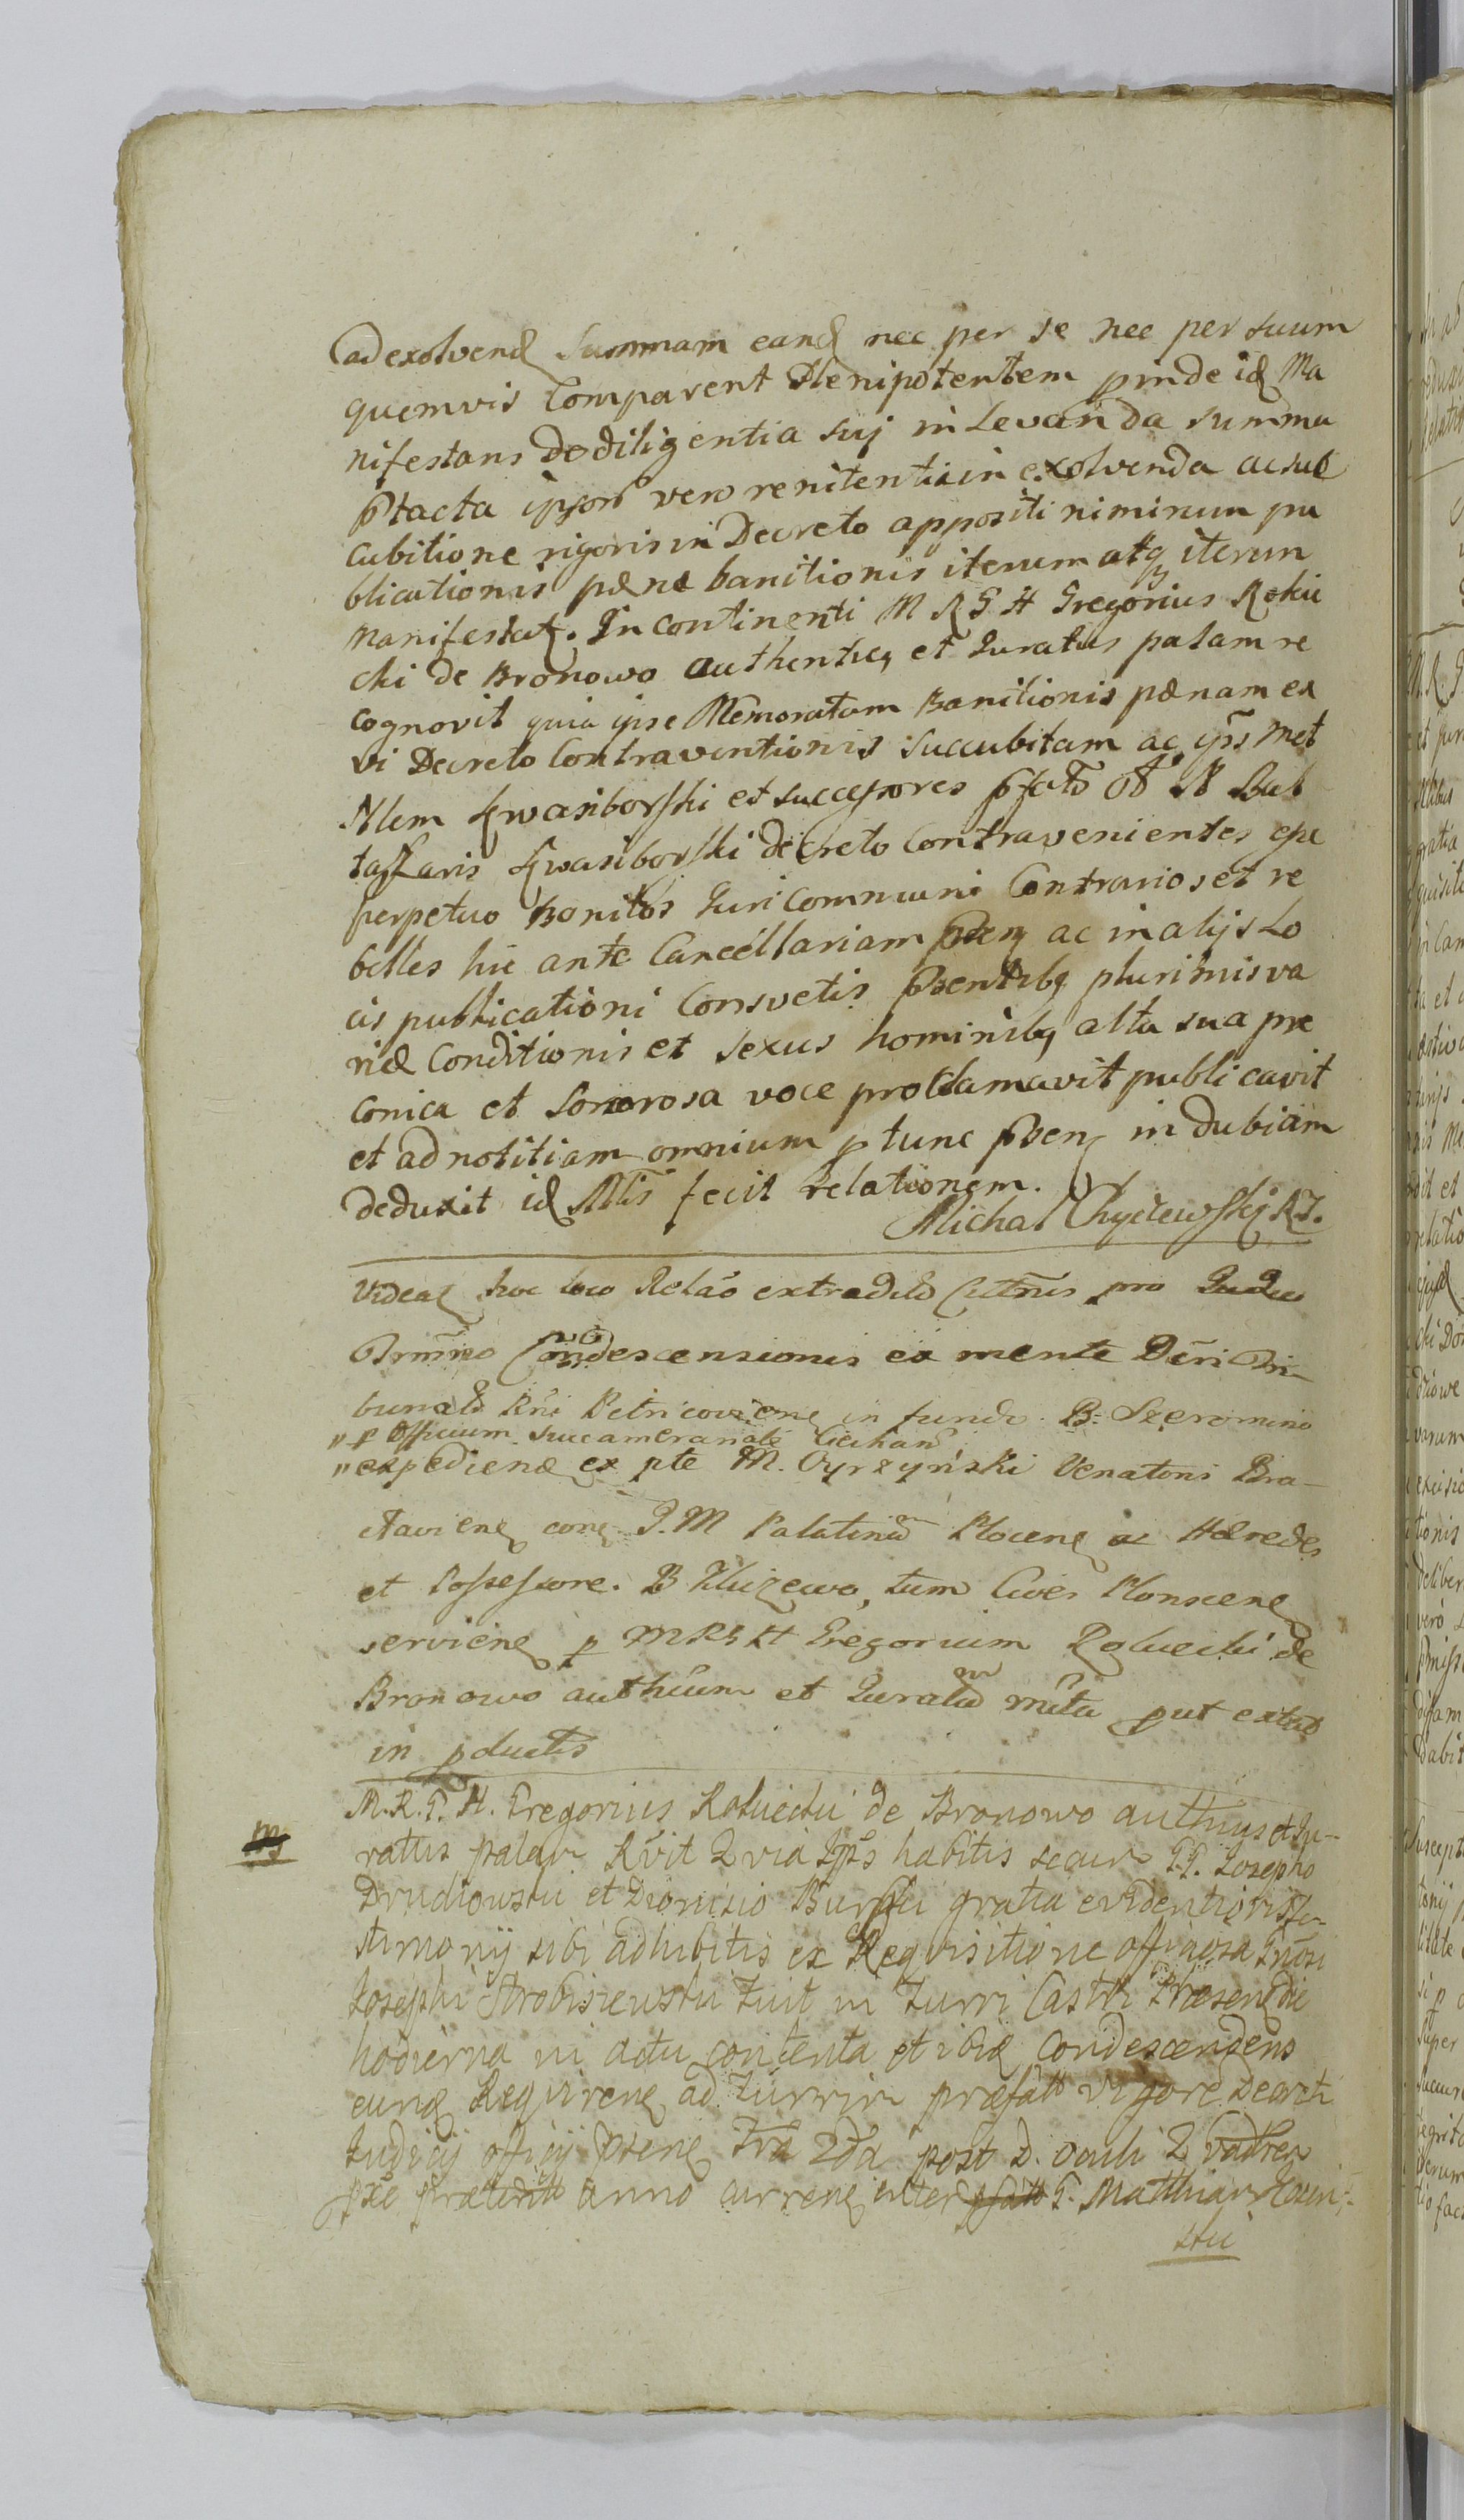 ad exolvend Summam eand nec per se nec per suum
quemvis Comparent Plenipotentem prinde id Ma
nifestans De diligentia suj in Levanda summa
ptacta ipsor vero renitentia in exolvenda ac suc
cubitione rigoris in Decreto appositi nimirum pu
blicationis pænæ banitionis iterum atq iterum
Manifestat. In continenti M R G H Gregorius Rokic
cki de Bronowo authenticq et Juratus palam re
cognovit quia ipse Memoratam Banitionis pænam ex
vi Decreto Contraventionis succubitam ac ips met
Nlem Kwasiborski et successores pfato ol N Bal
tassaris Kwasiborski decreto Contravenientes esse
perpetuo Banitos Juri Communi Contrarios et re
belles hic ante Cancellariam psen ac in alijs Lo
cis publicationi Consvetis psentibq plurimis va
riæ Conditionis et sexus hominibq alta sua præ
conica et sonorosa voce proclamavit publicavit
et ad notitiam omnium p tunc psen indubiam
deduxit id Mtis fecit relationem.
Michal Chyczewskj RJ.
Videat hoc loco Relao extradit Cittnis pro
Condescensionis ex mente Dcri Tri-
bunalis Rni Petricovien in fundo B: Szeromino
" p Officium Succamerariale Ciechan
" expediend ex pte M. Cyrzyński Venatoris Bra-
claviens con J. M Palatinum Plocens ac Hæredes
et Possessore. B Kluzewo, tum Cives Plonscens
serviens p M R G H Gregorium Rokiecki de
Bronowo authcum et Juratum put extat
in pductis
M. R. G. H. Gregorius Rokiecki de Bronowo authcus et Ju-
ratus palam Rvit Quia Ips habitis secum G.G. Josepho
et Dionisio Burski gratia evidentioris te-
stimonij sibi adhibitis ex Requisitione officiosa Gnosi
Josephi Strobiszewski fuit in Turri Castri Præsens die
hodierna in actu contenta et ibid Condescendens
eund Requirens ad Turrim præfatt vigore Decreti
Judicij officij psens fra 2da post D. oculi Quadrea
pxe præteritt anno currens inter pfatt G. Matthiam
ski